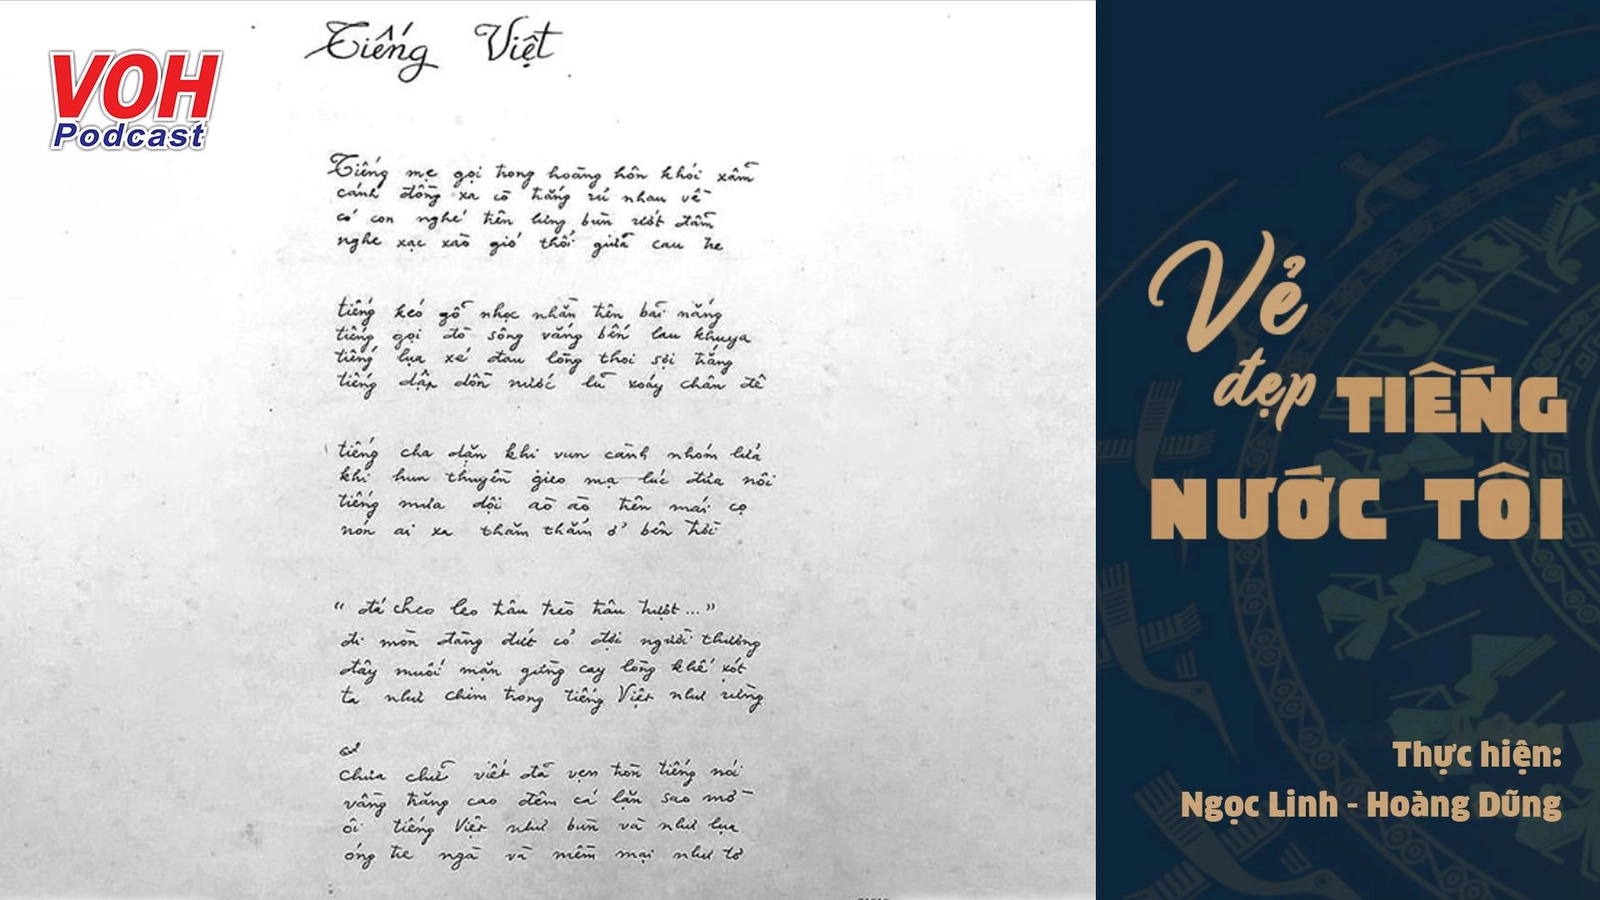 VOH
Podcast
Tiếng Việt
Tiếng mẹ gọi trong hoàng hôn khói xẫm
cánh đồng xa cò trắng rủ nhau về
có con nghé trên lưng bùn ướt đẫm
nghe xạc xào gió thổi giữa cau tre
tiếng kéo gỗ nhọc nhằn trên bãi nắng
tiếng gọi đò sông vắng bến lau khuya
tiếng lụa xé đau lòng thoi sợi trắng
tiếng dập dồn nước lũ xoáy chân đê
tiếng cha dặn khi vun cành nhóm lửa
khi hun thuyền gieo mạ lúc đưa nôi
tiếng mưa dội ào ào trên mái cọ
nón ai xa thăm thẳm ở bên trời
“ đá cheo leo trâu trèo trâu trượt...”
đi mòn đàng đứt cỏ đợi người thương
đây muối mặn gừng cay lòng khế xót
ta như chim trong tiếng Việt như rừng
chưa chữ viết đã vẹn tròn tiếng nói
vầng trăng cao đêm cá lặn sao mờ
ôi tiếng Việt như bùn và như lụa
óng tre ngà và mềm mại như tơ
Vẻ
đẹp TIẾNG
NƯỚC TÔI
Thực hiện:
Ngọc Linh - Hoàng Dũng